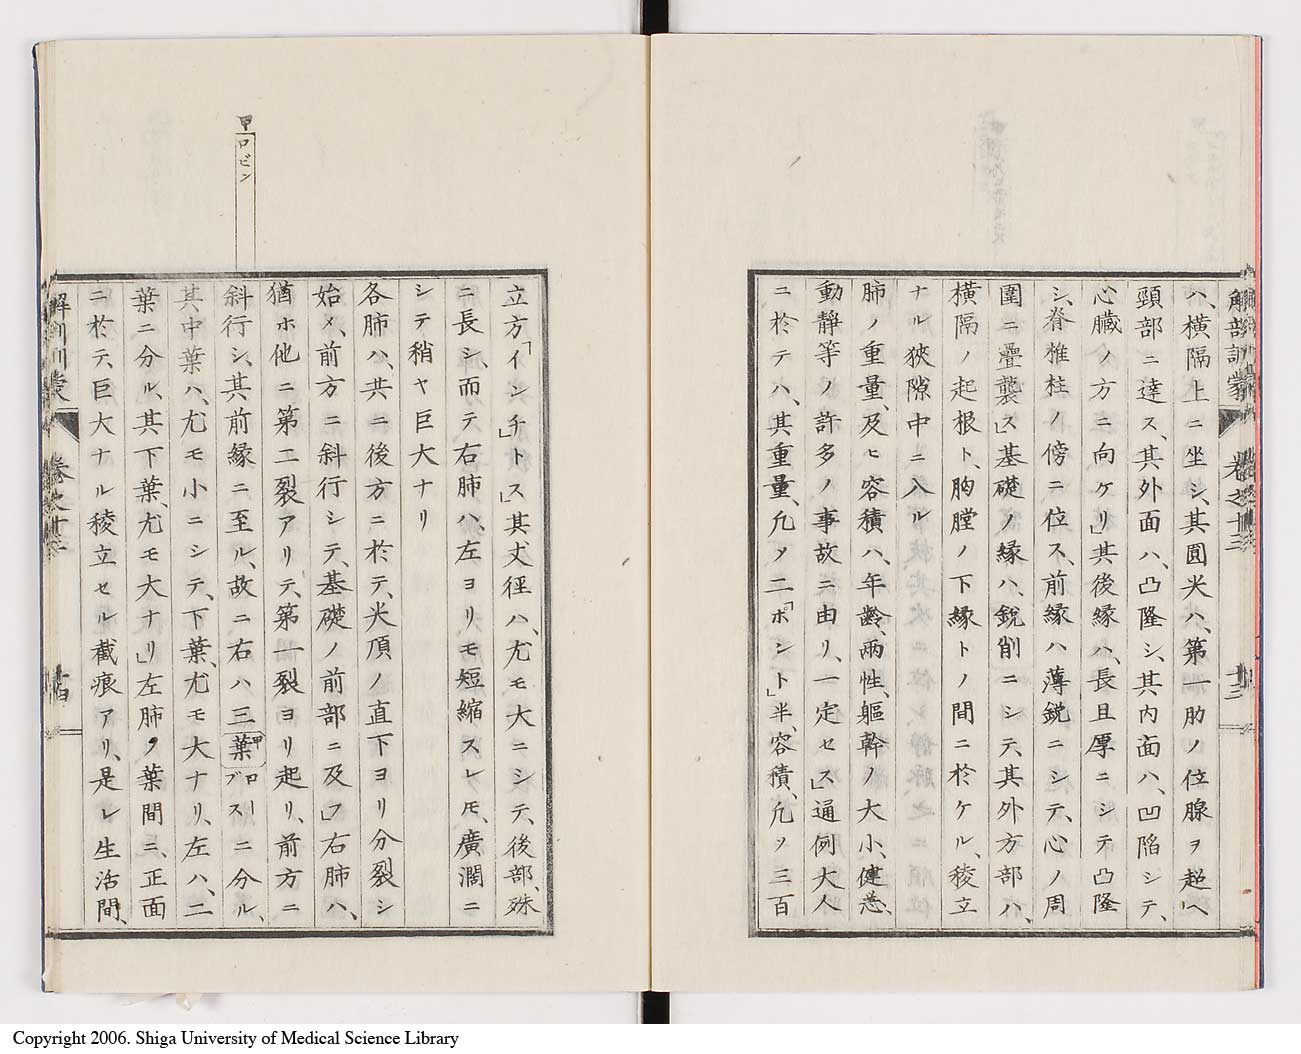 解剖訓蒙 卷之十三 十三
ハ、橫隔上ニ坐シ、其圓尖ハ、第一肋ノ位腺ヲ超ヘ
頸部ニ達ス、其外面ハ、凸隆シ、其內面ハ、凹陷シテ、
心臓ノ方ニ向ケリ」其後縁ハ、長且厚ニシテ凸隆
シ、脊椎柱ノ傍ニ位ス、前縁ハ薄銳ニシテ、心ノ周
圍ニ疊襲ス」基礎ノ縁ハ、銳削ニシテ、其外方部ハ、
橫隔ノ起根ト、胸膛ノ下縁トノ間ニ於ケル、稜立
ナル狹隙中ニ入ル
肺ノ重量、及ヒ容積ハ、年齡、兩性、軀幹ノ大小、健恙、
動靜等ノ許多ノ事故ニ由リ、一定セス」通例大人
ニ於テハ、其重量、凡ソ二「ポント」半、容積、凡ソ三百
立方「インチ」トス」其丈徑ハ、尤モ大ニシテ、後部、殊
ニ長シ、而テ右肺ハ、左ヨリモ短縮スレモ、廣濶ニ
シテ稍ヤ巨大ナリ
各肺ハ、共ニ後方ニ於テ、尖頂ノ直下ヨリ分裂シ
始メ、前方ニ斜行シテ、基礎ノ前部ニ及フ」右肺ハ、
猶ホ他ニ第二裂アリテ、第一裂ヨリ起リ、前方ニ
斜行シ、其前縁ニ至ル、故ニ右ハ三葉甲ロブースニ分ル、
其中葉ハ、尤モ小ニシテ、下葉、尤モ大ナリ、左ハ、二
葉ニ分ル、其下葉、尤モ大ナリ」左肺ノ葉間ニ、正面
ニ於テ、巨大ナル稜立セル截痕アリ、是レ生活間、
甲 ロビン
卷之十三 十四
Copyright 2006. Shiga University of Medical Science Library